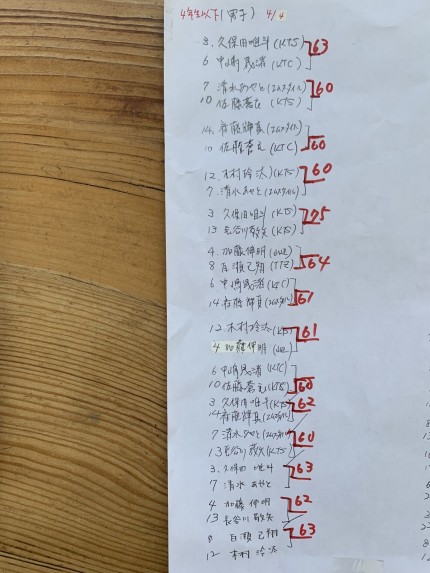 4年生以下(男子) 4/4
3. 久保田唯斗 (KTS) 63
6 中嶋 (KTC)
7 清水あやと 60
10 佐藤蒼 (KTS)
14. 斉藤輝真
10 佐藤蒼 (KTC) 60
12. 木村玲汰 (KTS) 60
7. 清水あやと
3 久保田唯斗 (KTS) 75
13 長谷川敬矢 (KTS)
4. 加藤伸明
8 百瀬己翔 (TTC) 64
6 中嶋 (KTC)
14. 斉藤輝真 61
12. 木村玲汰 (KTS) 61
4 加藤伸明
6 中嶋 (KTC)
10 佐藤蒼 (KTS) 60
3. 久保田唯斗 (KTS) 62
14 斉藤輝真
7 清水あやと 60
13 長谷川敬矢 (KTS)
3. 久保田唯斗 63
7 清水あやと
4 加藤伸明 62
13 長谷川敬矢
8 百瀬己翔 63
12 木村玲汰